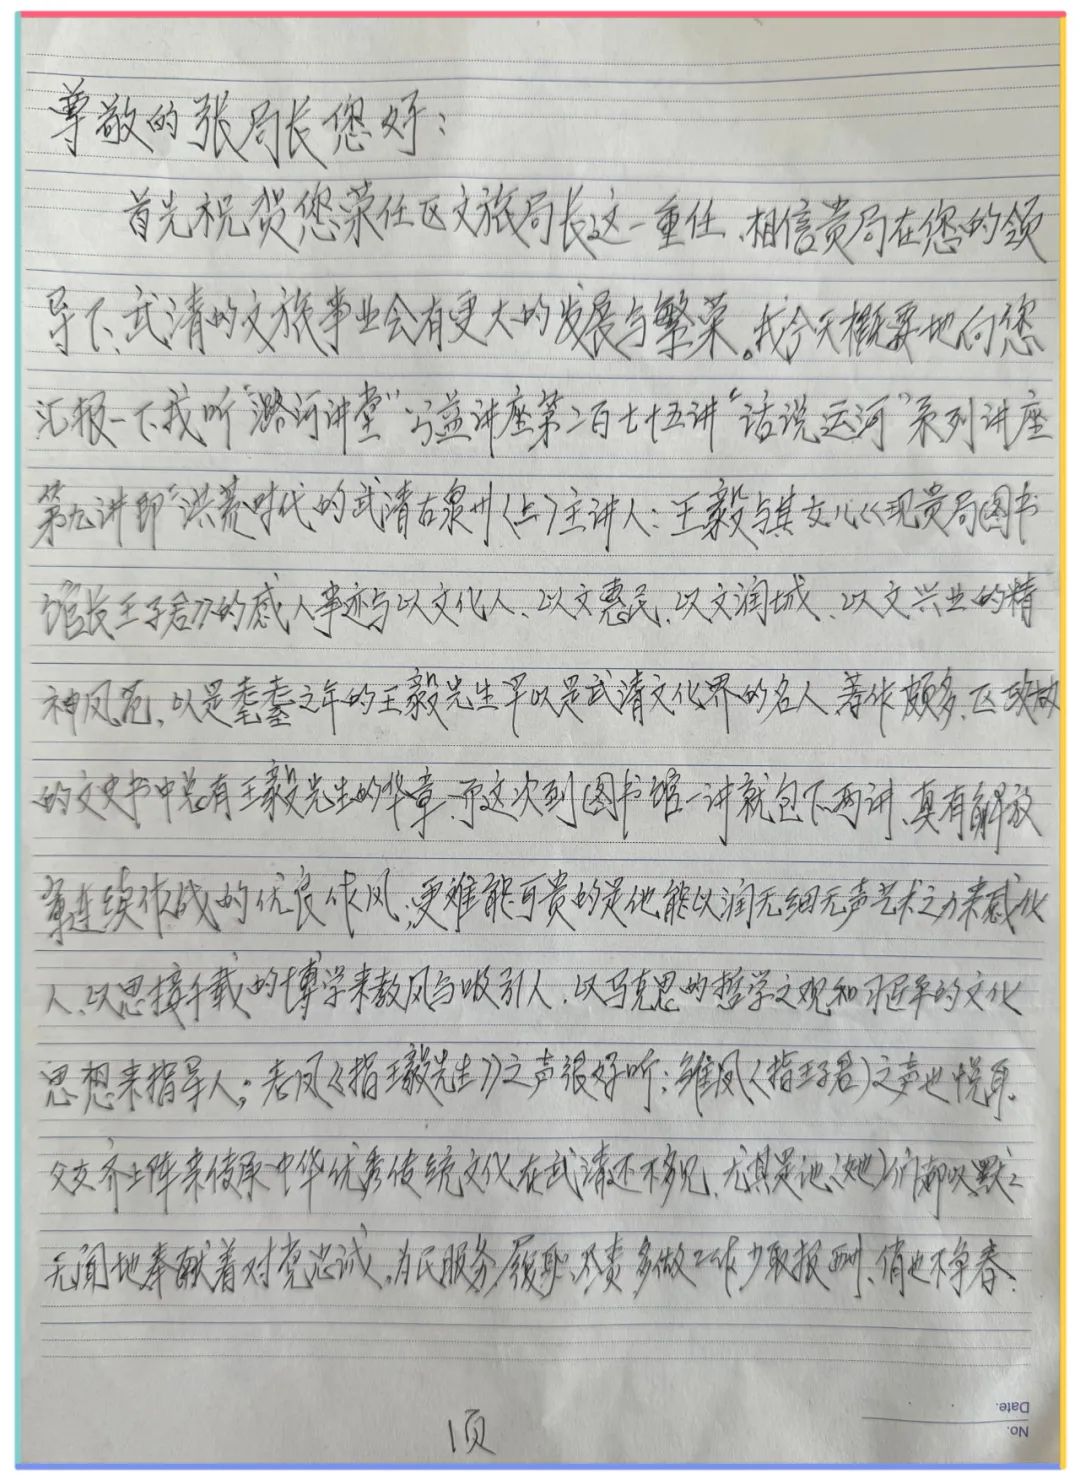 尊敬的张局长您好：
首先祝贺您荣任区文旅局长这一重任、相信贵局在您的领
导下、武清的文旅事业会有更大的发展与繁荣。我今天概要地向您
汇报一下我听“潞河讲堂”公益讲座第二百七十五讲“话说运河”系列讲座
第九讲即“洪荒时代的武清古泉州〈上〉主讲人：王毅与其女儿《现贵局图书
馆长王子君》的感人事迹与以文化人、以文惠民、以文润城、以文兴业的精
神风范，以是耄耋之年的王毅先生早以是武清文化界的名人、著作颇多、区
的文史书中总有王毅先生的华章、而这次到图书馆一讲就包下两讲、真有解放
军连续作战的优良作风、更难能可贵的是他能以润无细无声艺术之力来感化
人、以思接千载的博学来鼓风与吸引人、以马克思的哲学文观和习近平的文化
思想来指导人；老凤《指王毅先生》之声很好听；雏凤〈指王子君〉之声也悦耳。
父女齐上阵来传承中华优秀传统文化在武清还不多见、尤其是他〈她〉们都以默々
无闻地奉献着对党忠诚、为民服务、履职尽责多做工作少取报酬、俏也不争春、
1页
No.
Date.